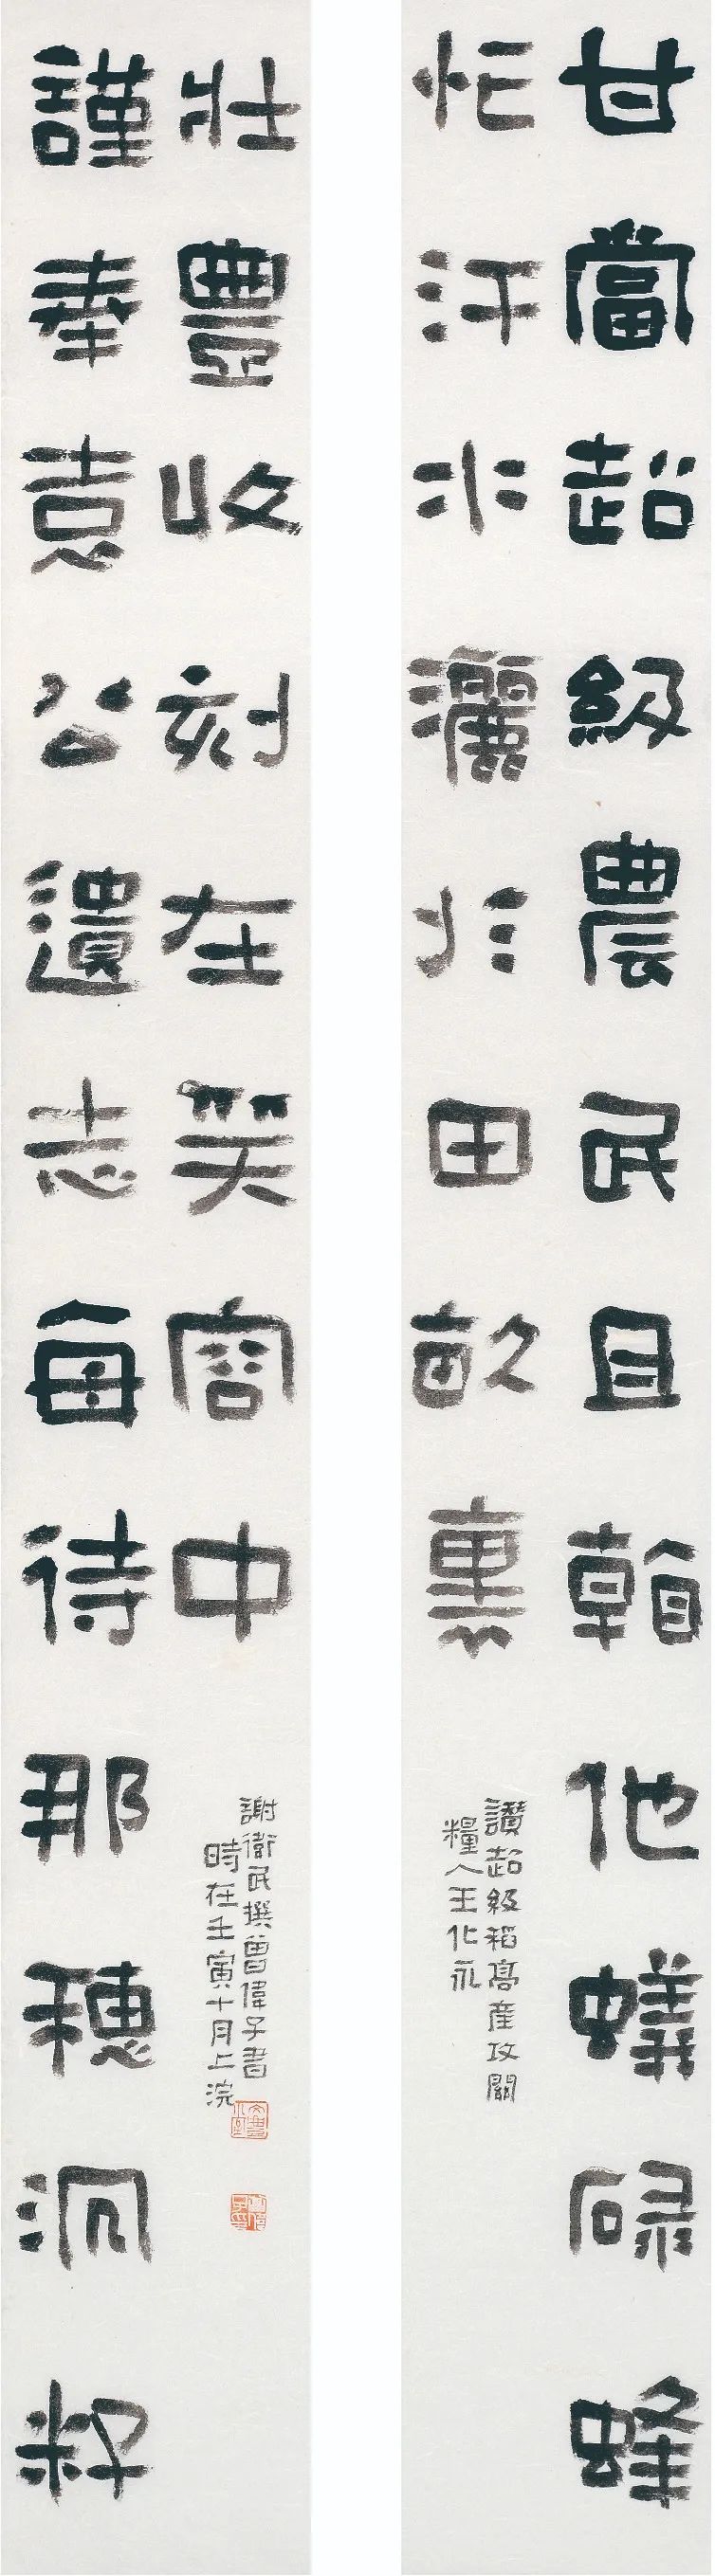 甘當超級農民且看他蟻碌蜂
忙汗水灑於田畝裏
讚超級稻高產攻關
糧人王化永
謹奉袁公遺志每待那穗沉籽
壯豐收刻在笑容中
謝衛民撰曾偉子書
時在壬寅十月上浣